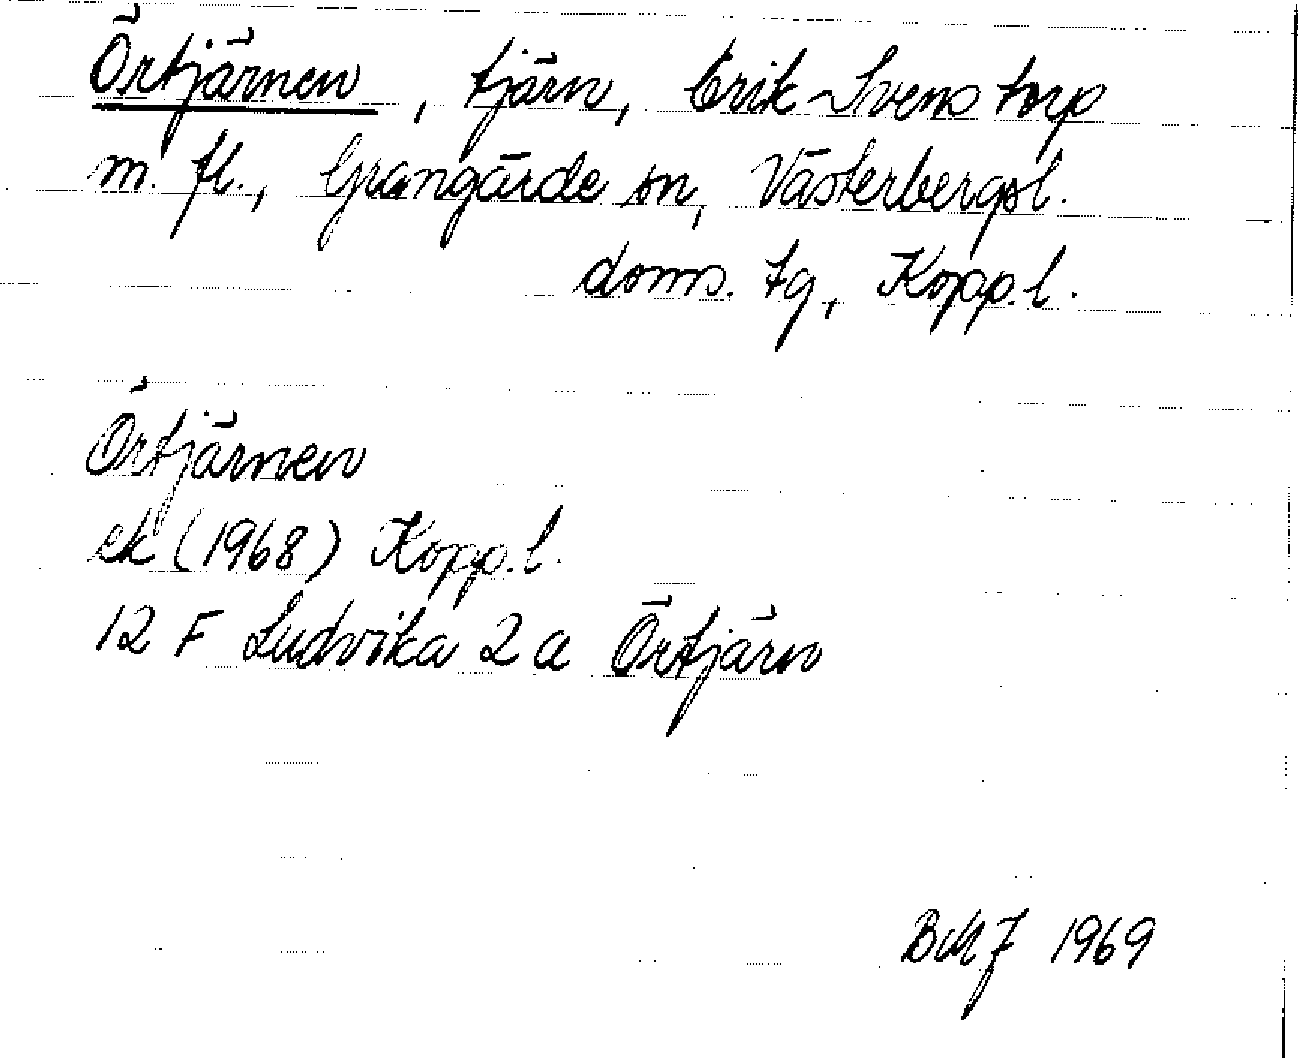 Örtjärnen, tjärn, Erik-Svens torp
m. fl., Grangärde sn, Västerbergsl.
doms. tg, Kopp.l.
Örtjärnen
ek (1968) Kopp.l.
12 F Ludvika 2 a Örtjärn
BMJ 1969